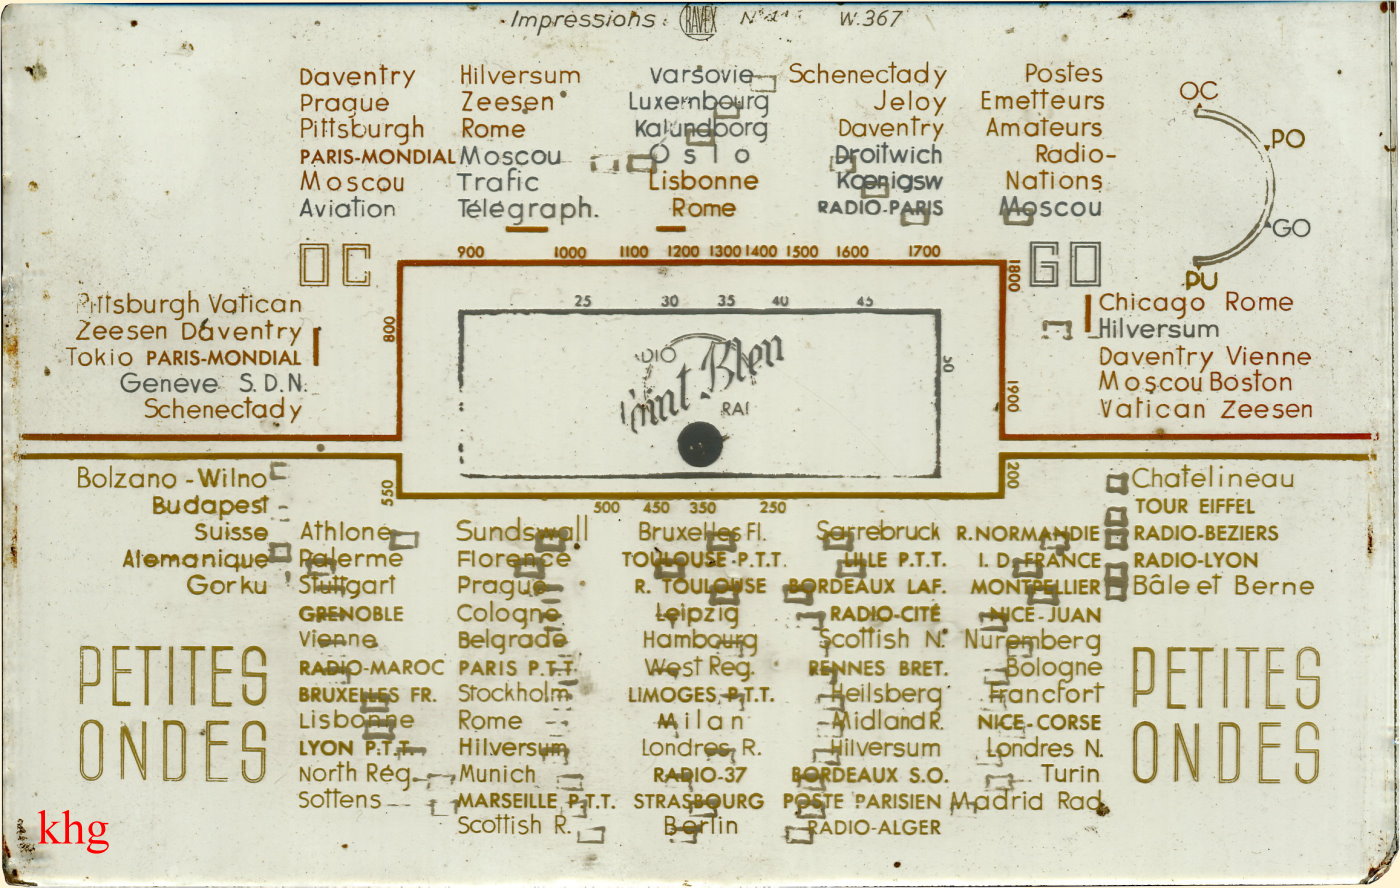 Impressions: RAVEX W.367
Daventry Hilversum Varsovie Schenectady Postes
Prague Zeesen Luxembourg Jeloy Emetteurs
Pittsburgh Rome Kalundborg Daventry Amateurs
PARIS-MONDIAL Moscou Oslo Droitwich Radio-
Moscou Trafic Lisbonne Kœnigsw Nations
Aviation Télégraph. Rome RADIO-PARIS Moscou
OC
PO
GO
PU
OC 900 1000 1100 1200 1300 1400 1500 1600 1700 GO
800 1800
25 30 35 40 45
50
1900
Pittsburgh Vatican
Zeesen Daventry
Tokio PARIS-MONDIAL
Genève S.D.N.
Schenectady
Chicago Rome
Hilversum
Daventry Vienne
Moscou Boston
Vatican Zeesen
550 200
500 450 350 250
Bolzano - Wilno
Budapest
Suisse
Alemanique
Gorku
Athlone Sundswall Bruxelles Fl. Sarrebruck R.NORMANDIE
Palerme Florence TOULOUSE-P.T.T. LILLE P.T.T. I.D. FRANCE
Stuttgart Prague R. TOULOUSE BORDEAUX LAF. MONTPELLIER
GRENOBLE Cologne Leipzig RADIO-CITÉ NICE-JUAN
Vienne Belgrade Hambourg Scottish N. Nuremberg
RADIO-MAROC PARIS P.T.T. West Reg. RENNES BRET. Bologne
BRUXELLES FR. Stockholm LIMOGES P.T.T. Heilsberg Francfort
Lisbonne Rome Milan Midland R. NICE-CORSE
LYON P.T.T. Hilversum Londres R. Hilversum Londres N.
North Rég. Munich RADIO-37 BORDEAUX S.O. Turin
Sottens MARSEILLE P.T.T. STRASBOURG POSTE PARISIEN Madrid Rad.
Scottish R. Berlin RADIO-ALGER
Chatelineau
TOUR EIFFEL
RADIO-BEZIERS
RADIO-LYON
Bâle et Berne
PETITES
ONDES
PETITES
ONDES
khg